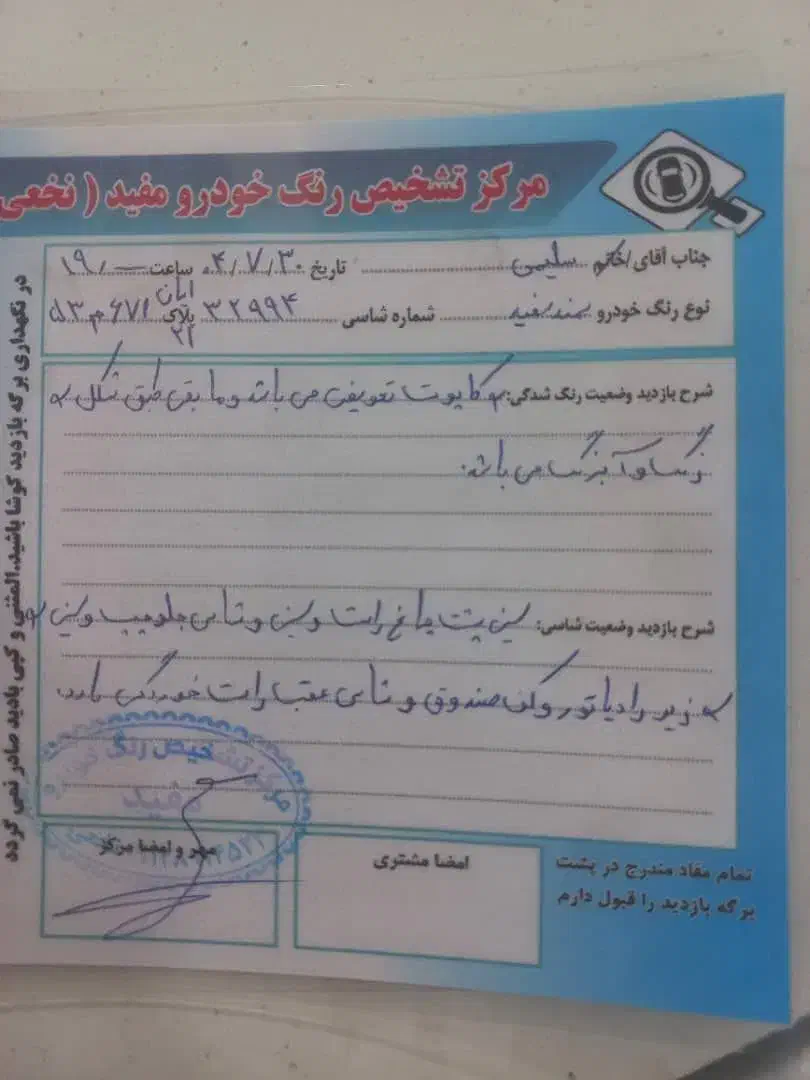 مرکز تشخیص رنگ خودرو مفید ( نخعی
جناب آقای/خانم سلیمی تاریخ ۰۴/۷/۳۰ ساعت ۱۹/
نوع رنگ خودرو سمند سفید شماره شاسی ۳۲۹۹۴ پلاک ۶۷۱ م ۵۳
ایران
۳۲
شرح بازدید وضعیت رنگ شدگی: کاپوت تعویض می باشد و مابقی طبق شکل
رنگ و آبرنگ می باشد.
شرح بازدید وضعیت شاسی: سینی پشت چراغ راست و سینی و شاسی جلو چپ و سینی
زیر رادیاتور و کف صندوق و شاسی عقب راست خوردگی دارد.
مرکز تشخیص رنگ خودرو
مفید
مهر و امضا مرکز
امضا مشتری
تمام مفاد مندرج در پشت
برگه بازدید را قبول دارم
در نگهداری برگه بازدید کوشا باشید.المثنی و کپی بادید صادر نمی گردد